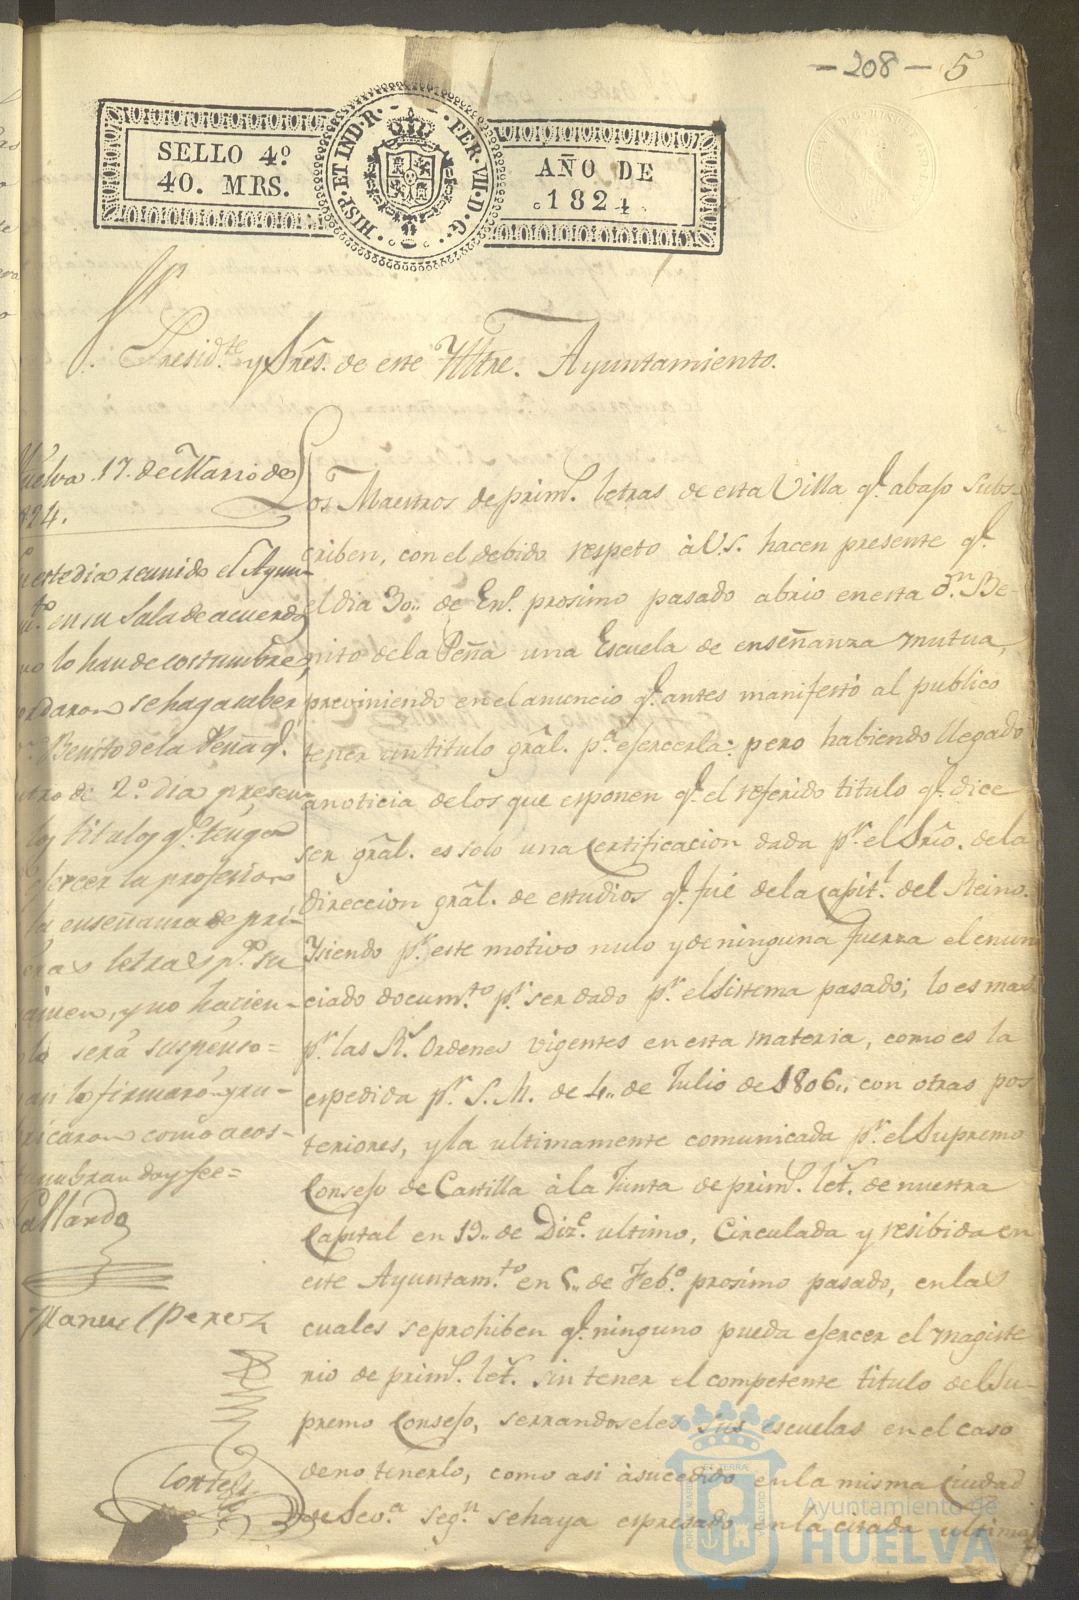 - 208 - 5
SELLO 4º
40. MRS.
HISP. ET IND. R. FER. VII. D. G.
AÑO DE
1824
Sr.
Presid.te y Sres. de este Yltre. Ayuntamiento.
Huelva 17. de Marzo de
1824.
este dia reunido el Ayun-
to. en su Sala de acuerdo
lo han de costumbre,
se haga saber
Benito de la Peña q.
de 2º dia presen
los titulos q. tenga
ejercer la profesion
la enseñanza de pri-
letras p.
y no hacien-
será suspenso=
lo firmaron y ru-
como acos-
doy fee=
Gallardo
Manuel Perez
Cortes
Los Maestros de prim.s letras de esta Villa q.e abajo subs-
criben, con el debido respeto à V.S. hacen presente q.e
el dia 30,, de En.o prosimo pasado abrio en esta D.n Be-
nito de la Peña una Escuela de enseñanza mutua,
previniendo en el anuncio q.e antes manifestó al publico
tener un titulo gral. p.a esercerla: pero habiendo llegado
a noticia de los que esponen q.e el referido titulo q.e dice
ser gral. es solo una Certificacion dada p.r el Srio. de la
direccion gral. de estudios q.e fué de la Capit.l del Reino.
Ysiendo p.r este motivo nulo y de ninguna fuerza el enun
ciado docum.to p.r ser dado p.r el Sistema pasado; lo es mas
p.r las R.s Ordenes vigentes en esta materia, como es la
espedida p.r S. M. de 4,, de Julio de 1806,, con otras pos
teriores, y la ultimamente comunicada p.r el Supremo
Consejo de Castilla à la Junta de prim.s let.s de nuestra
Capital en 19,, de Diz.e ultimo, Circulada y resibida en
este Ayuntam.to en 5,, de Feb.o prosimo pasado, en las
cuales se prohiben q.e ninguno pueda esercer el magiste
rio de prim.s let.s sin tener el competente titulo del Su-
premo Consejo, serrandoseles sus escuelas en el caso
de no tenerlo, como asi à sucedido en la misma Ciudad
de Sev.a seg.n se haya espresado en la citada ultima
Ayuntamiento de
HUELVA